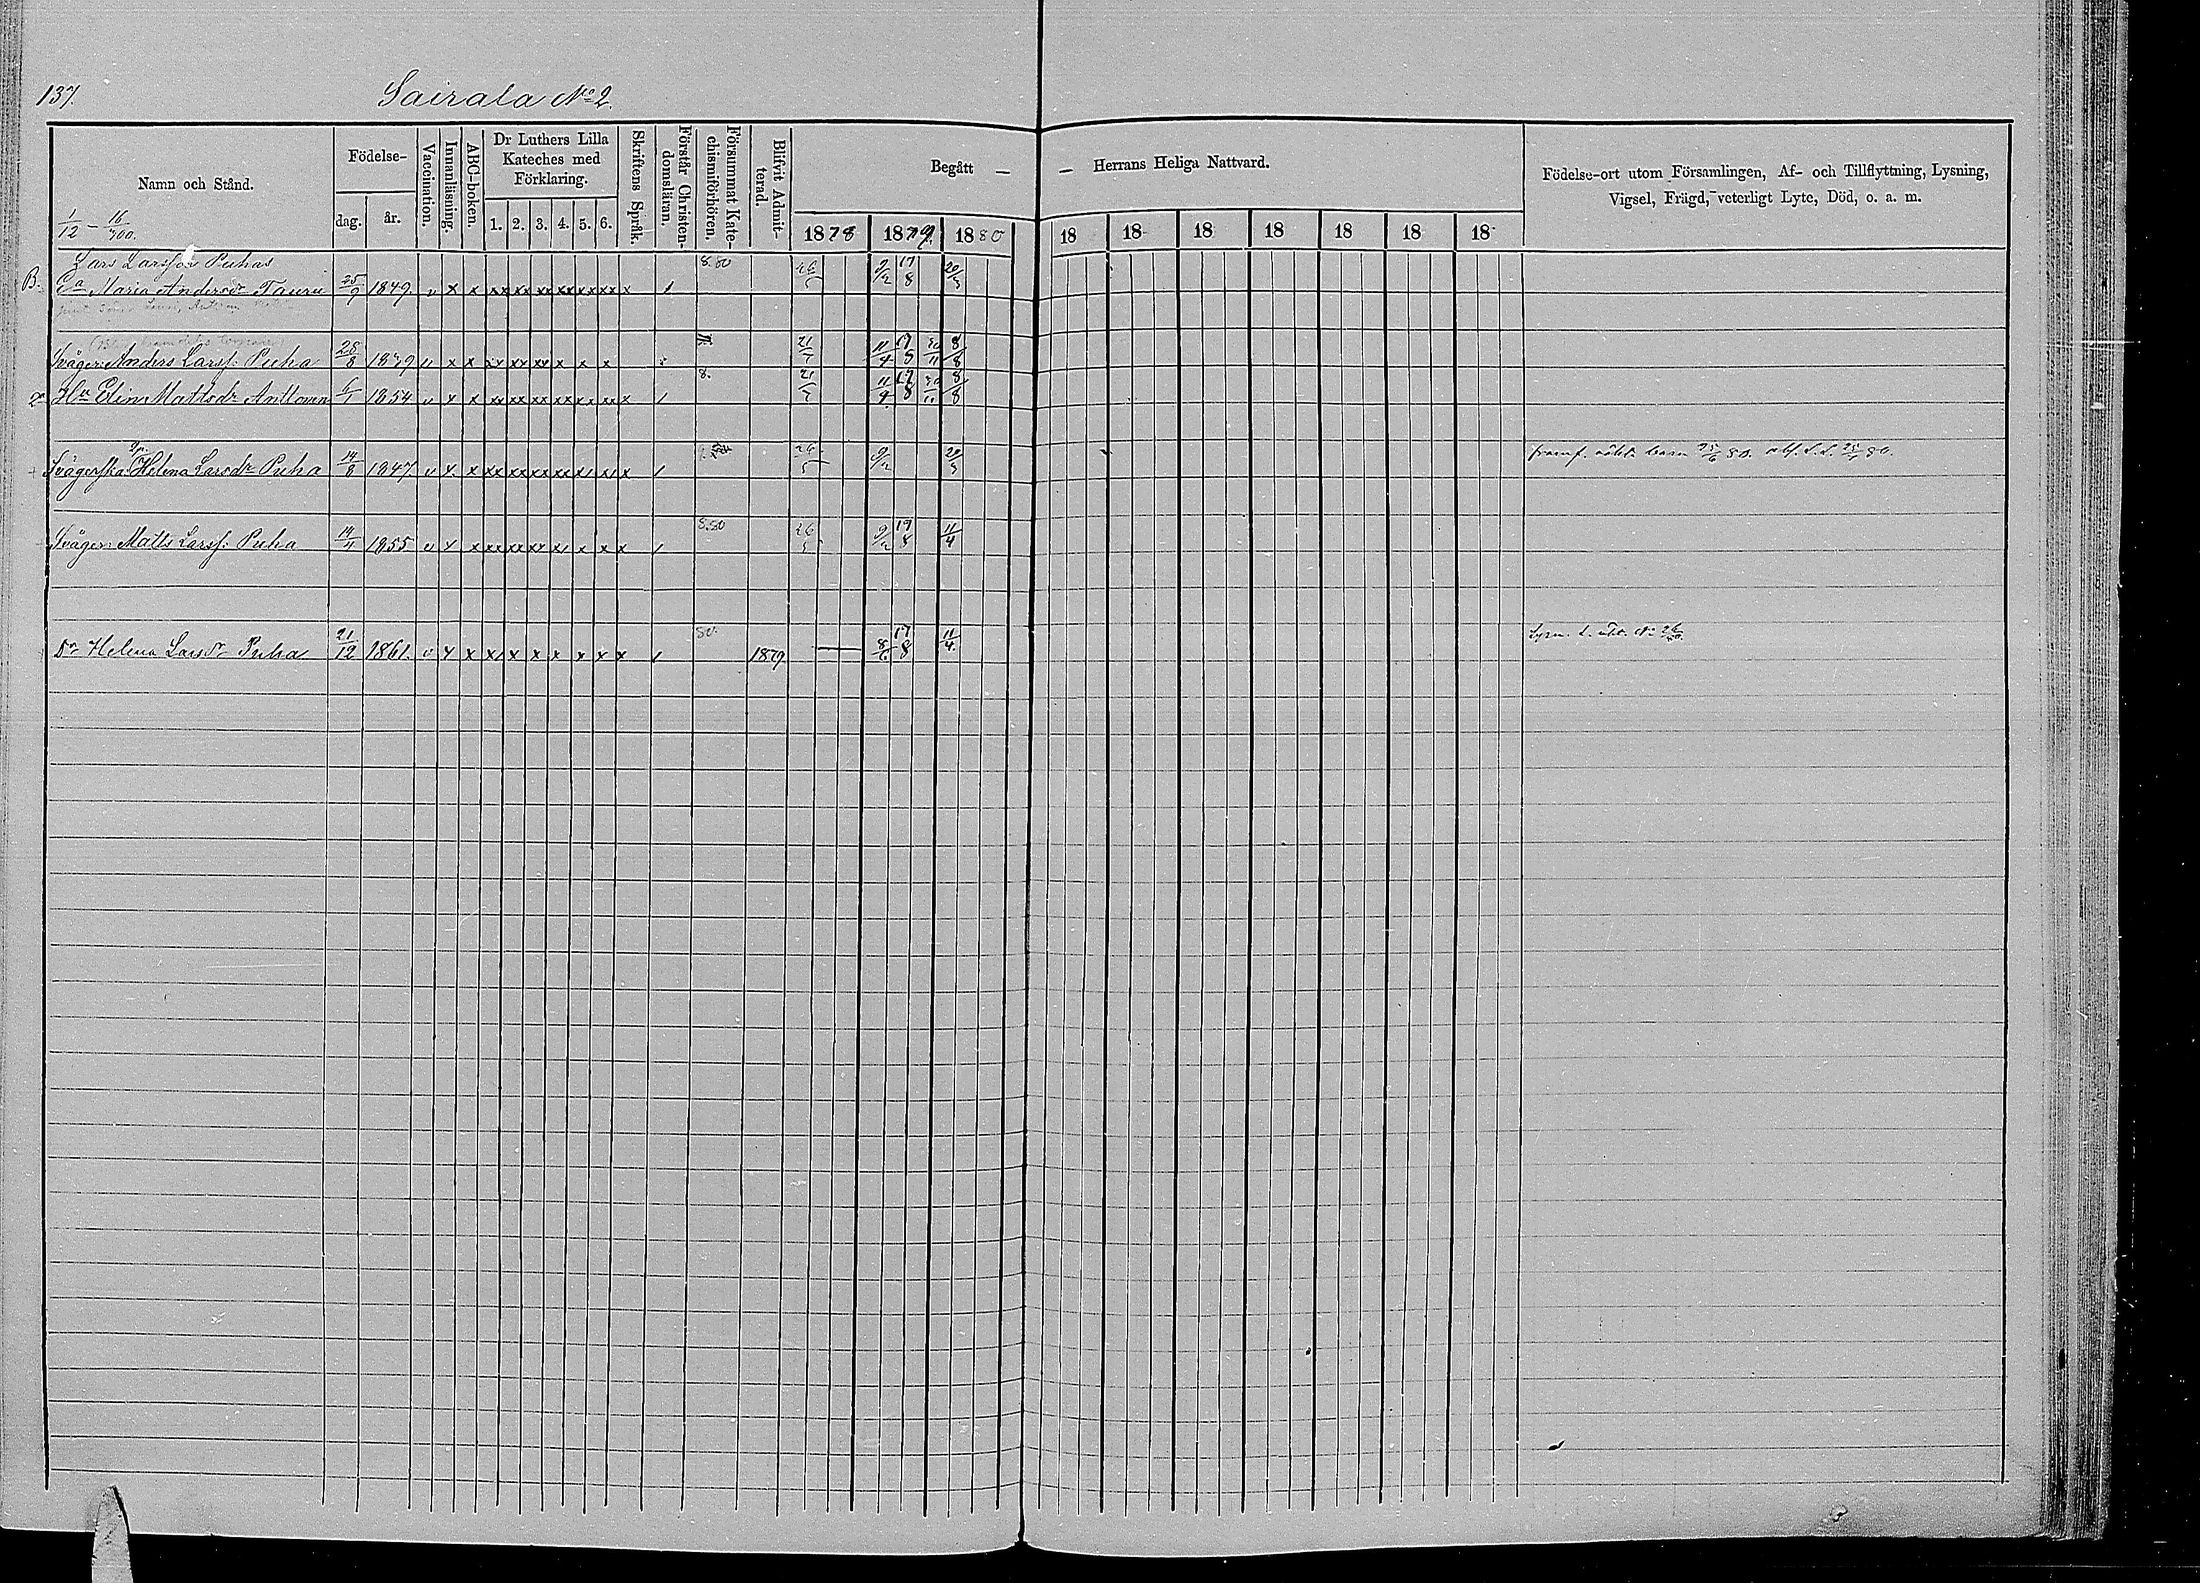 137.
Sairala No 2.
Namn och Stånd.
Födelse-
dag.
år.
Vaccination.
Innanläsning.
ABC-boken.
Dr Luthers Lilla
Kateches med
Förklaring.
1. 2. 3. 4. 5. 6.
Skriftens Språk.
Förstår Christen-
domsläran.
Försummat Kate-
chismiförhören.
Blifvit Admit-
terad.
Begått —
— Herrans Heliga Nattvard.
Födelse-ort utom Församlingen, Af- och Tillflyttning, Lysning,
Vigsel, Frägd, veterligt Lyte, Död, o. a. m.
1/12 - 16/700.
1878 1879. 1880 18 18 18 18 18 18 18
Lars Larsson Puhas 8.80 9/2 17/8 20/3
B. Ea Maria Andersdr Tauru 25/9 1849. v x x xx xx xx xx xx xx x 1
Svåger Anders Larss: Puha 28/8 1879 v x x xx xx xx x x x 21/5 11/4 17/8 30/11 8/8
Hu Elin Mattsdr Anttonen 6/1 1854 v x x xx xx xx xx xx x 1 8. 21/5 11/4 17/8 30/11 8/8
Svägerska Helena Larsdr Puha 14/8 1847. v x x xx xx xx xx x 1 26/5 9/2 20/3 barn 25/6 80.
Svåger: Matts Larss: Puha 14/11 1855 v x x xx xx xx x x x 1 8.80 26/5 9/2 17/8 11/4
Dr Helena Larsdr Puha 21/12 1861. v x x x x x x x x x 1 80. 1879 — 8/6 17/8 11/4.